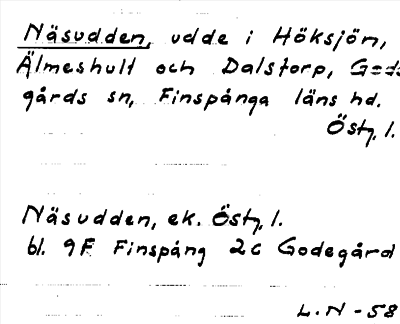 Näsudden, udde i Höksjön,
Älmeshult och Dalstorp, Gode
gårds sn, Finspånga läns hd.
Östg. l.
Näsudden, ek. Östg. l.
bl. 9F Finspång 2c Godegård
L. N - 58